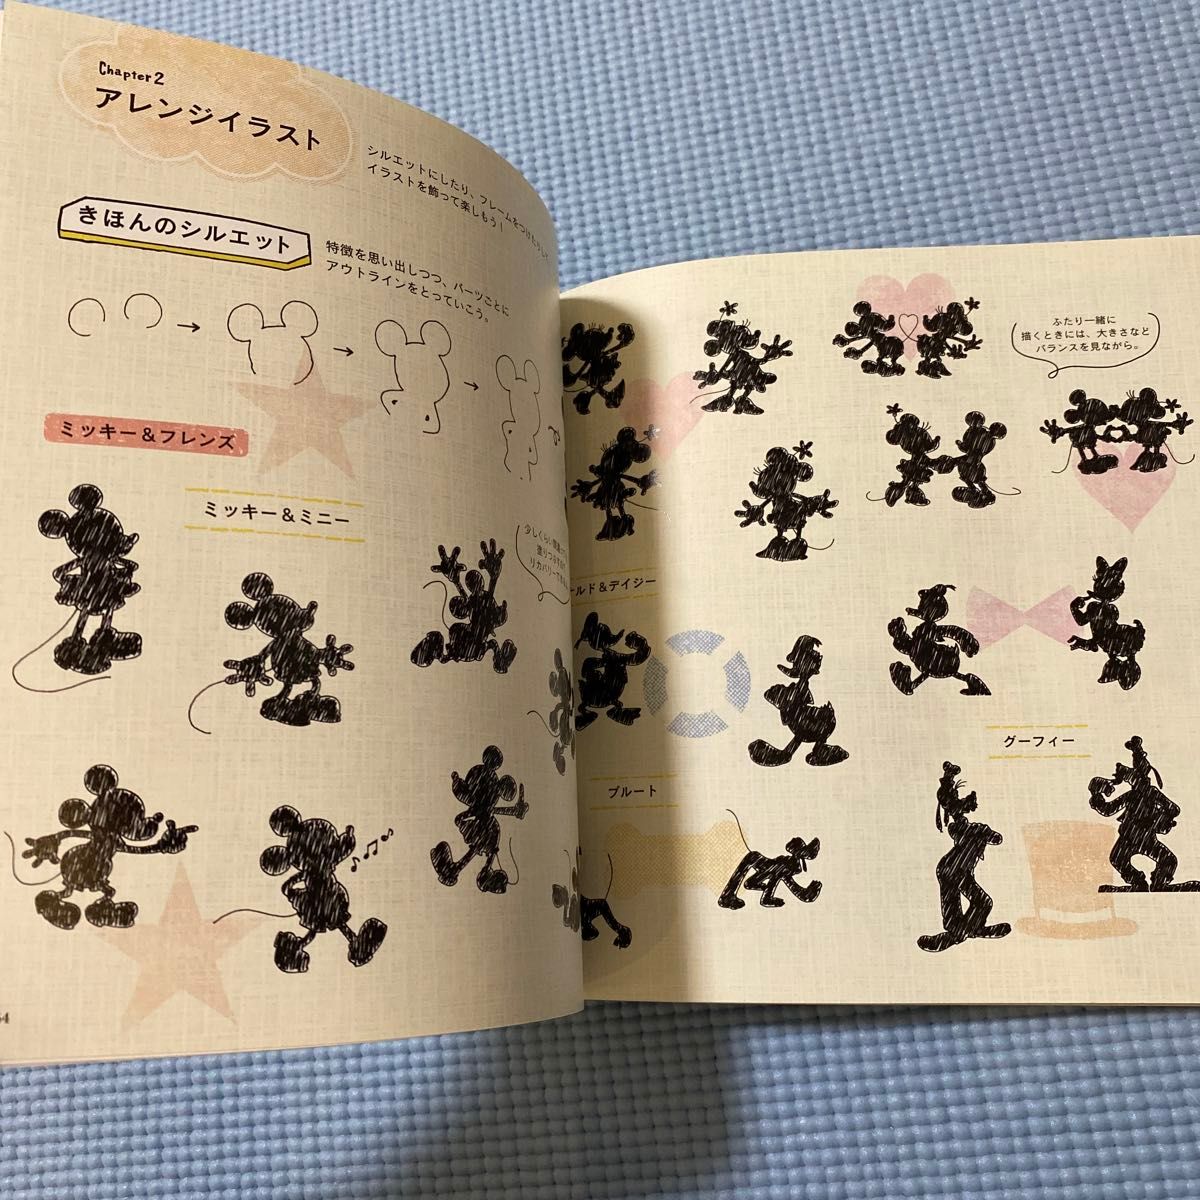 Chapter2
アレンジイラスト
シルエットにしたり、フレームをつけたりして
イラストを飾って楽しもう！
きほんのシルエット
特徴を思い出しつつ、パーツごとに
アウトラインをとっていこう。
ミッキー＆フレンズ
ミッキー＆ミニー
少しくらい
塗りつぶ
リカバリー
ふたり一緒に
描くときには、大きさなど
バランスを見ながら。
ルド＆デイジー
プルート
グーフィー